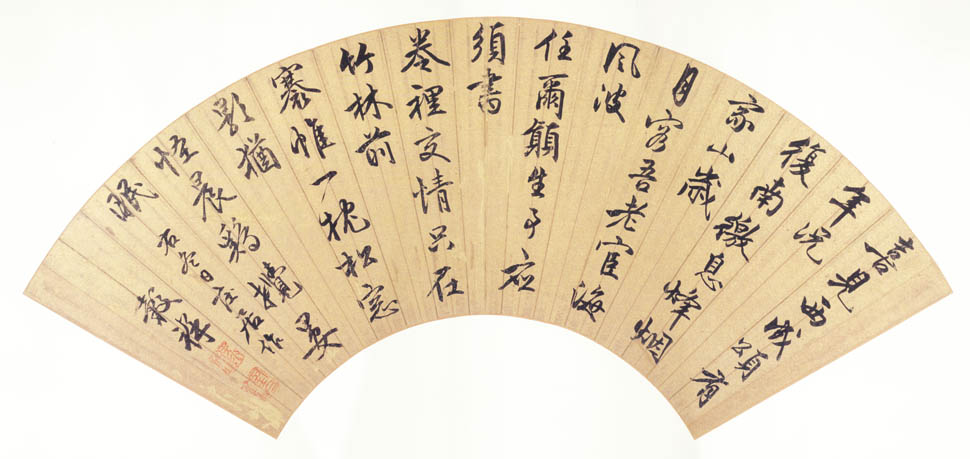 喜見西成頌有
年況
復南徼息烽烟
家山歲
月容吾老宦海
風波
任爾顛生事應
須書
卷裡交情只在
竹林前
褰帷一枕松窓
影猶
怪晨鷄攪晏
眠
右冬日庄居作
穀祥